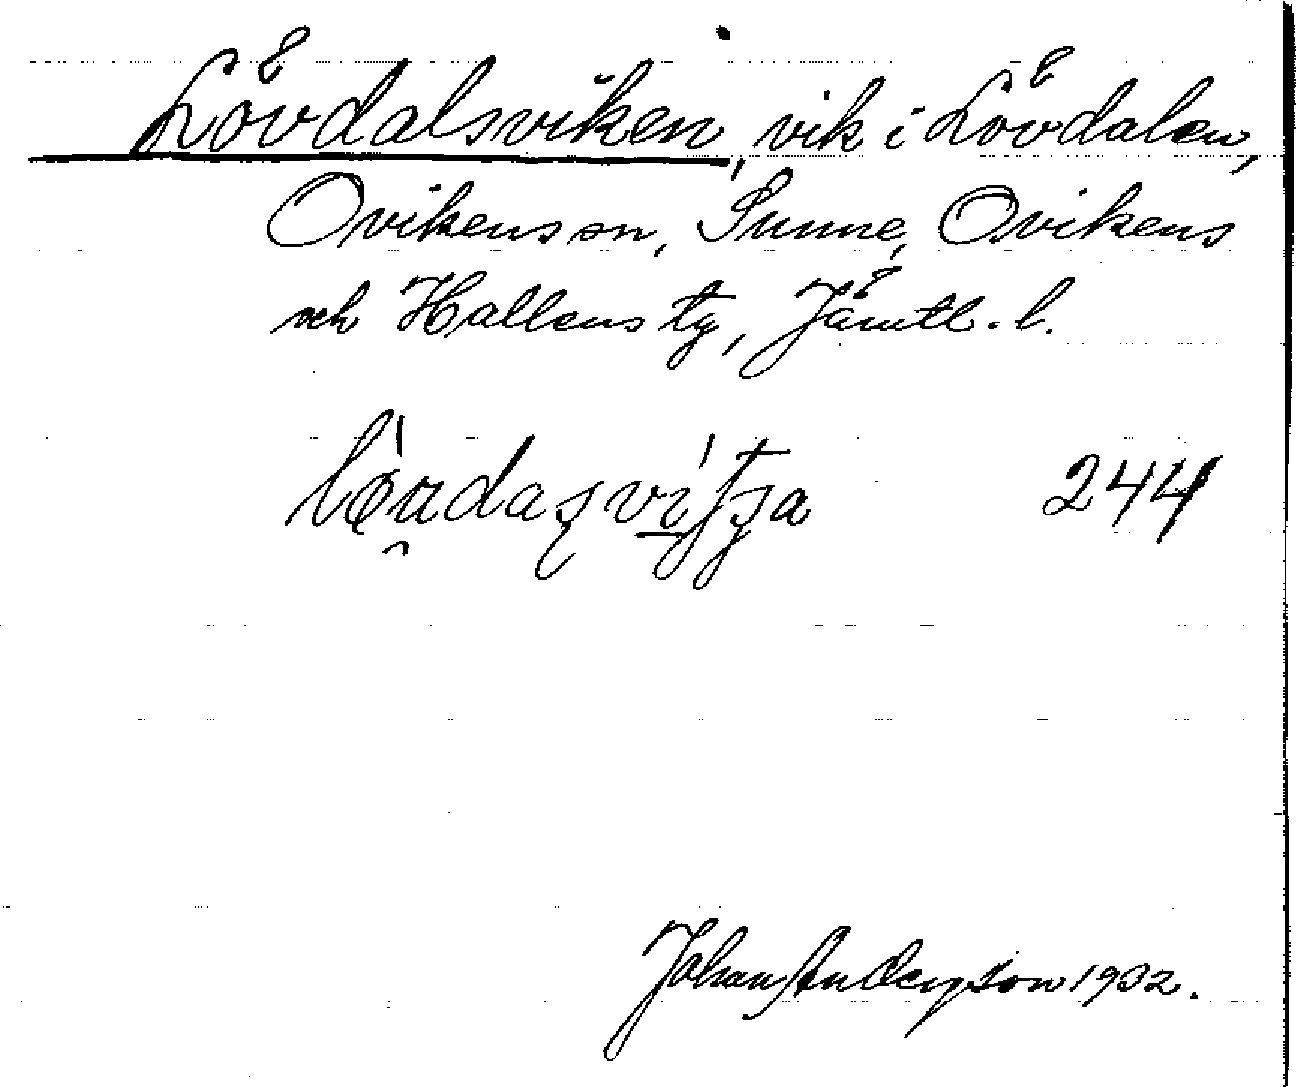 Lövdalsviken, vik i Lövdalen,
Ovikens sn, Sunne, Ovikens
och Hallens tg, Jämtl. l.
244
Johan Anderzson 1932.